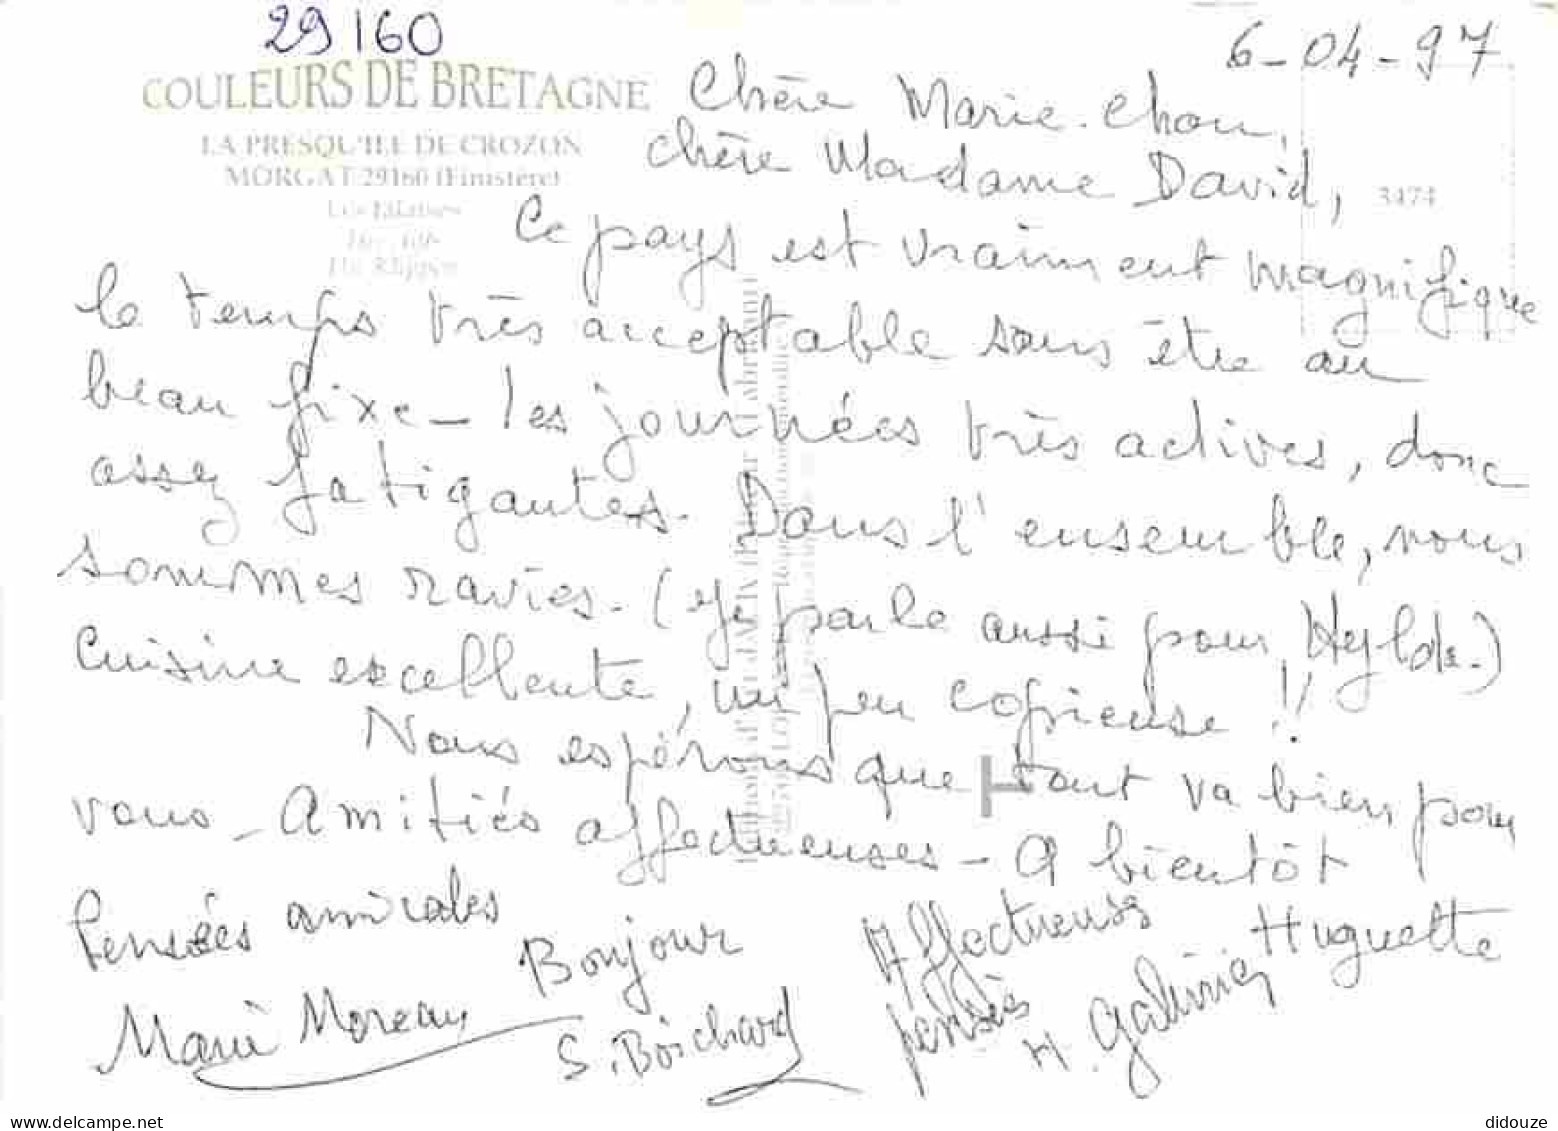 29160
6-04-97
COULEURS DE BRETAGNE
LA PRESQU'ILE DE CROZON
MORGAT 29160 (Finistère)
3474
Chère Marie-Chou,
chère Madame David,
Ce pays est vraiment magnifique
le temps très acceptable sans être au
beau fixe - les journées très actives, donc
assez fatigantes. Dans l'ensemble, nous
sommes ravies. (je parle aussi pour Hylda.)
Cuisine excellente, un peu copieuse !!
Nous espérons que tout va bien pour
vous - Amitiés affectueuses - A bientôt
Huguette
Pensées amicales
Marie Moreau
Bonjour
S. Boichard
Affectueuses
pensées
H.
delcampe.net
didouze